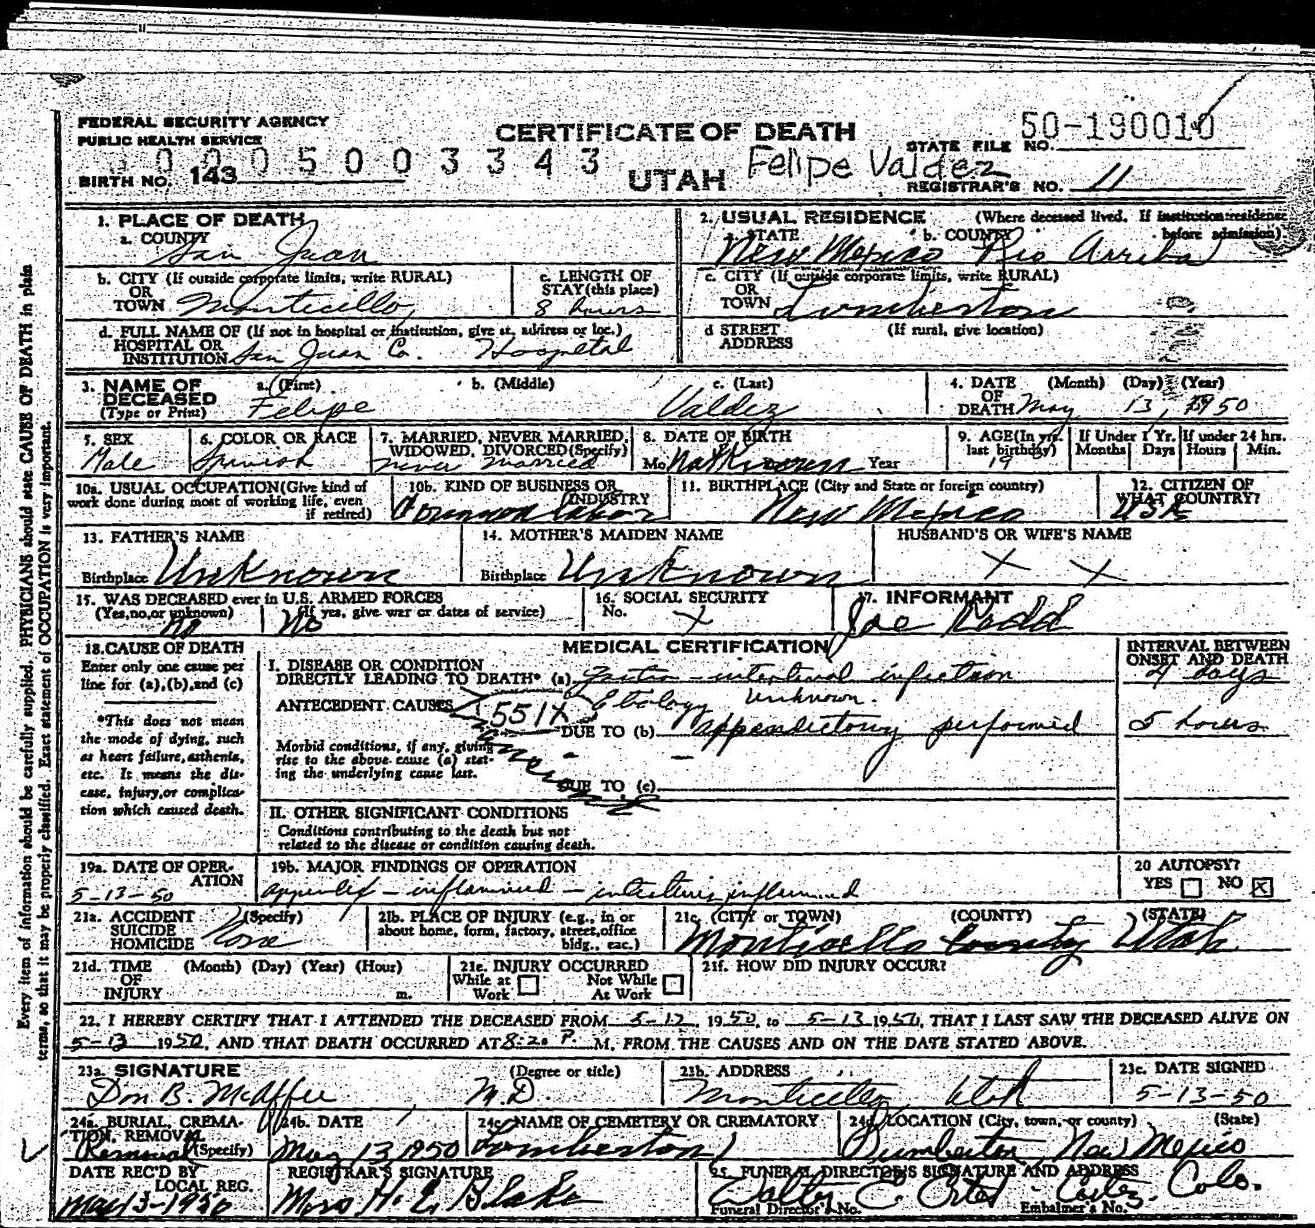 FEDERAL SECURITY AGENCY
PUBLIC HEALTH SERVICE
CERTIFICATE OF DEATH
50-190010
STATE FILE NO.
0005003343
BIRTH NO. 143
UTAH
Felipe Valdez
REGISTRAR'S NO. 11
1. PLACE OF DEATH
a. COUNTY San Juan
2. USUAL RESIDENCE (Where deceased lived. If institution: residence before admission)
a. STATE New Mexico b. COUNTY Rio Arriba
b. CITY (If outside corporate limits, write RURAL) OR TOWN Monticello,
c. LENGTH OF STAY (this place) 8 hours
c. CITY (If outside corporate limits, write RURAL) OR TOWN Lumberton
d. FULL NAME OF (If not in hospital or institution, give st. address or loc.) HOSPITAL OR INSTITUTION San Juan Co. Hospital
d STREET ADDRESS (If rural, give location)
3. NAME OF DECEASED (Type or Print) a. (First) Felipe b. (Middle) c. (Last) Valdez
4. DATE OF DEATH (Month) (Day) (Year) May 13, 1950
5. SEX Male
6. COLOR OR RACE Spanish
7. MARRIED, NEVER MARRIED, WIDOWED, DIVORCED (Specify) never married
8. DATE OF BIRTH Mo Not Known Year
9. AGE (In yrs. last birthday) 19
If Under 1 Yr. Months Days
If under 24 hrs. Hours Min.
10a. USUAL OCCUPATION (Give kind of work done during most of working life, even if retired)
10b. KIND OF BUSINESS OR INDUSTRY Common Labor
11. BIRTHPLACE (City and State or foreign country) New Mexico
12. CITIZEN OF WHAT COUNTRY? USA
13. FATHER'S NAME
Birthplace Unknown
14. MOTHER'S MAIDEN NAME
Birthplace Unknown
HUSBAND'S OR WIFE'S NAME
X X
15. WAS DECEASED ever in U.S. ARMED FORCES
(Yes, no, or unknown) no (If yes, give war or dates of service) No
16. SOCIAL SECURITY No. X
17. INFORMANT Joe
18. CAUSE OF DEATH
Enter only one cause per line for (a), (b), and (c)
*This does not mean the mode of dying, such as heart failure, asthenia, etc. It means the disease, injury, or complication which caused death.
MEDICAL CERTIFICATION
INTERVAL BETWEEN ONSET AND DEATH
I. DISEASE OR CONDITION DIRECTLY LEADING TO DEATH* (a) Gastro-intestinal infection
4 days
ANTECEDENT CAUSES 551X Etiology unknown.
DUE TO (b) appendictomy performed
5 hours
Morbid conditions, if any, giving rise to the above cause (a) stating the underlying cause last.
DUE TO (c)
II. OTHER SIGNIFICANT CONDITIONS
Conditions contributing to the death but not related to the disease or condition causing death.
19a. DATE OF OPERATION 5-13-50
19b. MAJOR FINDINGS OF OPERATION
appendix - inflammed - intestines inflammed
20 AUTOPSY?
YES NO X
21a. ACCIDENT SUICIDE HOMICIDE (Specify) None
21b. PLACE OF INJURY (e.g., in or about home, form, factory, street, office bldg., eac.)
21c. (CITY or TOWN) (COUNTY) (STATE)
Monticello County Utah
21d. TIME OF INJURY (Month) (Day) (Year) (Hour) m.
21e. INJURY OCCURRED While at Work Not While At Work
21f. HOW DID INJURY OCCUR?
22. I HEREBY CERTIFY THAT I ATTENDED THE DECEASED FROM 5-12, 1950, to 5-13 1950, THAT I LAST SAW THE DECEASED ALIVE ON
5-13 1950, AND THAT DEATH OCCURRED AT 8:20 P. M. FROM THE CAUSES AND ON THE DATE STATED ABOVE.
23a. SIGNATURE (Degree or title) 23b. ADDRESS 23c. DATE SIGNED
Don B. McAffee, M.D. Monticello, Utah 5-13-50
24a. BURIAL, CREMATION, REMOVAL (Specify) Removal
24b. DATE May 13 1950
24c. NAME OF CEMETERY OR CREMATORY Lumberton
24d. LOCATION (City, town, or county) (State) Lumberton New Mexico
DATE REC'D BY LOCAL REG. May 13-1950
REGISTRAR'S SIGNATURE Mrs H. E. Blake
25. FUNERAL DIRECTOR'S SIGNATURE AND ADDRESS
Walter E. Ertel Cortez. Colo.
Funeral Director's No. Embalmer's No.
Every item of information should be carefully supplied. PHYSICIANS should state CAUSE OF DEATH in plain
terms, so that it may be properly classified. Exact statement of OCCUPATION is very important.